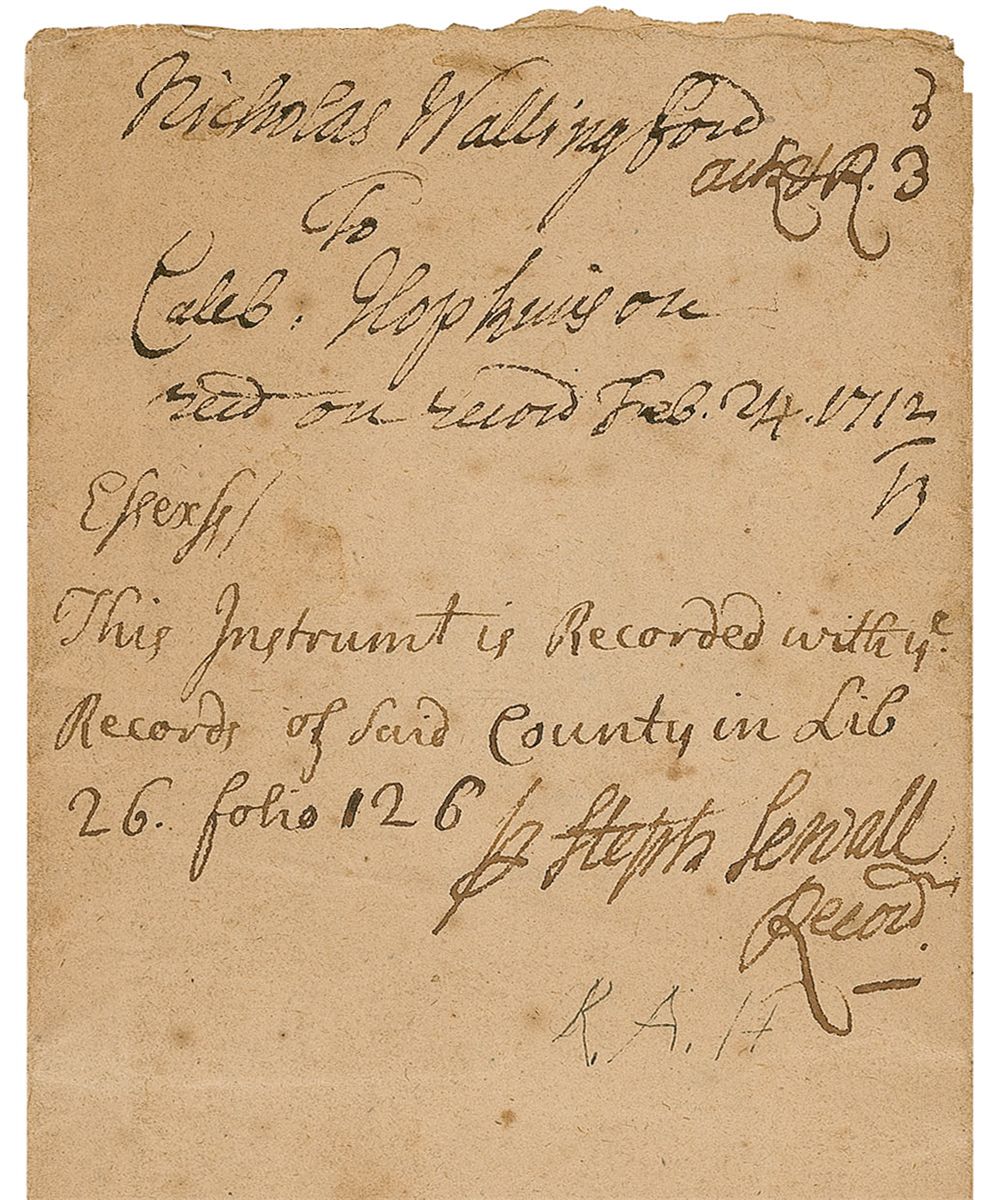 Nicholas Wallingford
ack & R. 3
To
Caleb. Hopkinson
recd on record Feb. 24. 1712
13
Essex ss/
This Instrumt is Recorded with ye
Records of said County in Lib
26. folio 126
p Steph Sewall
Record.
R. A. H